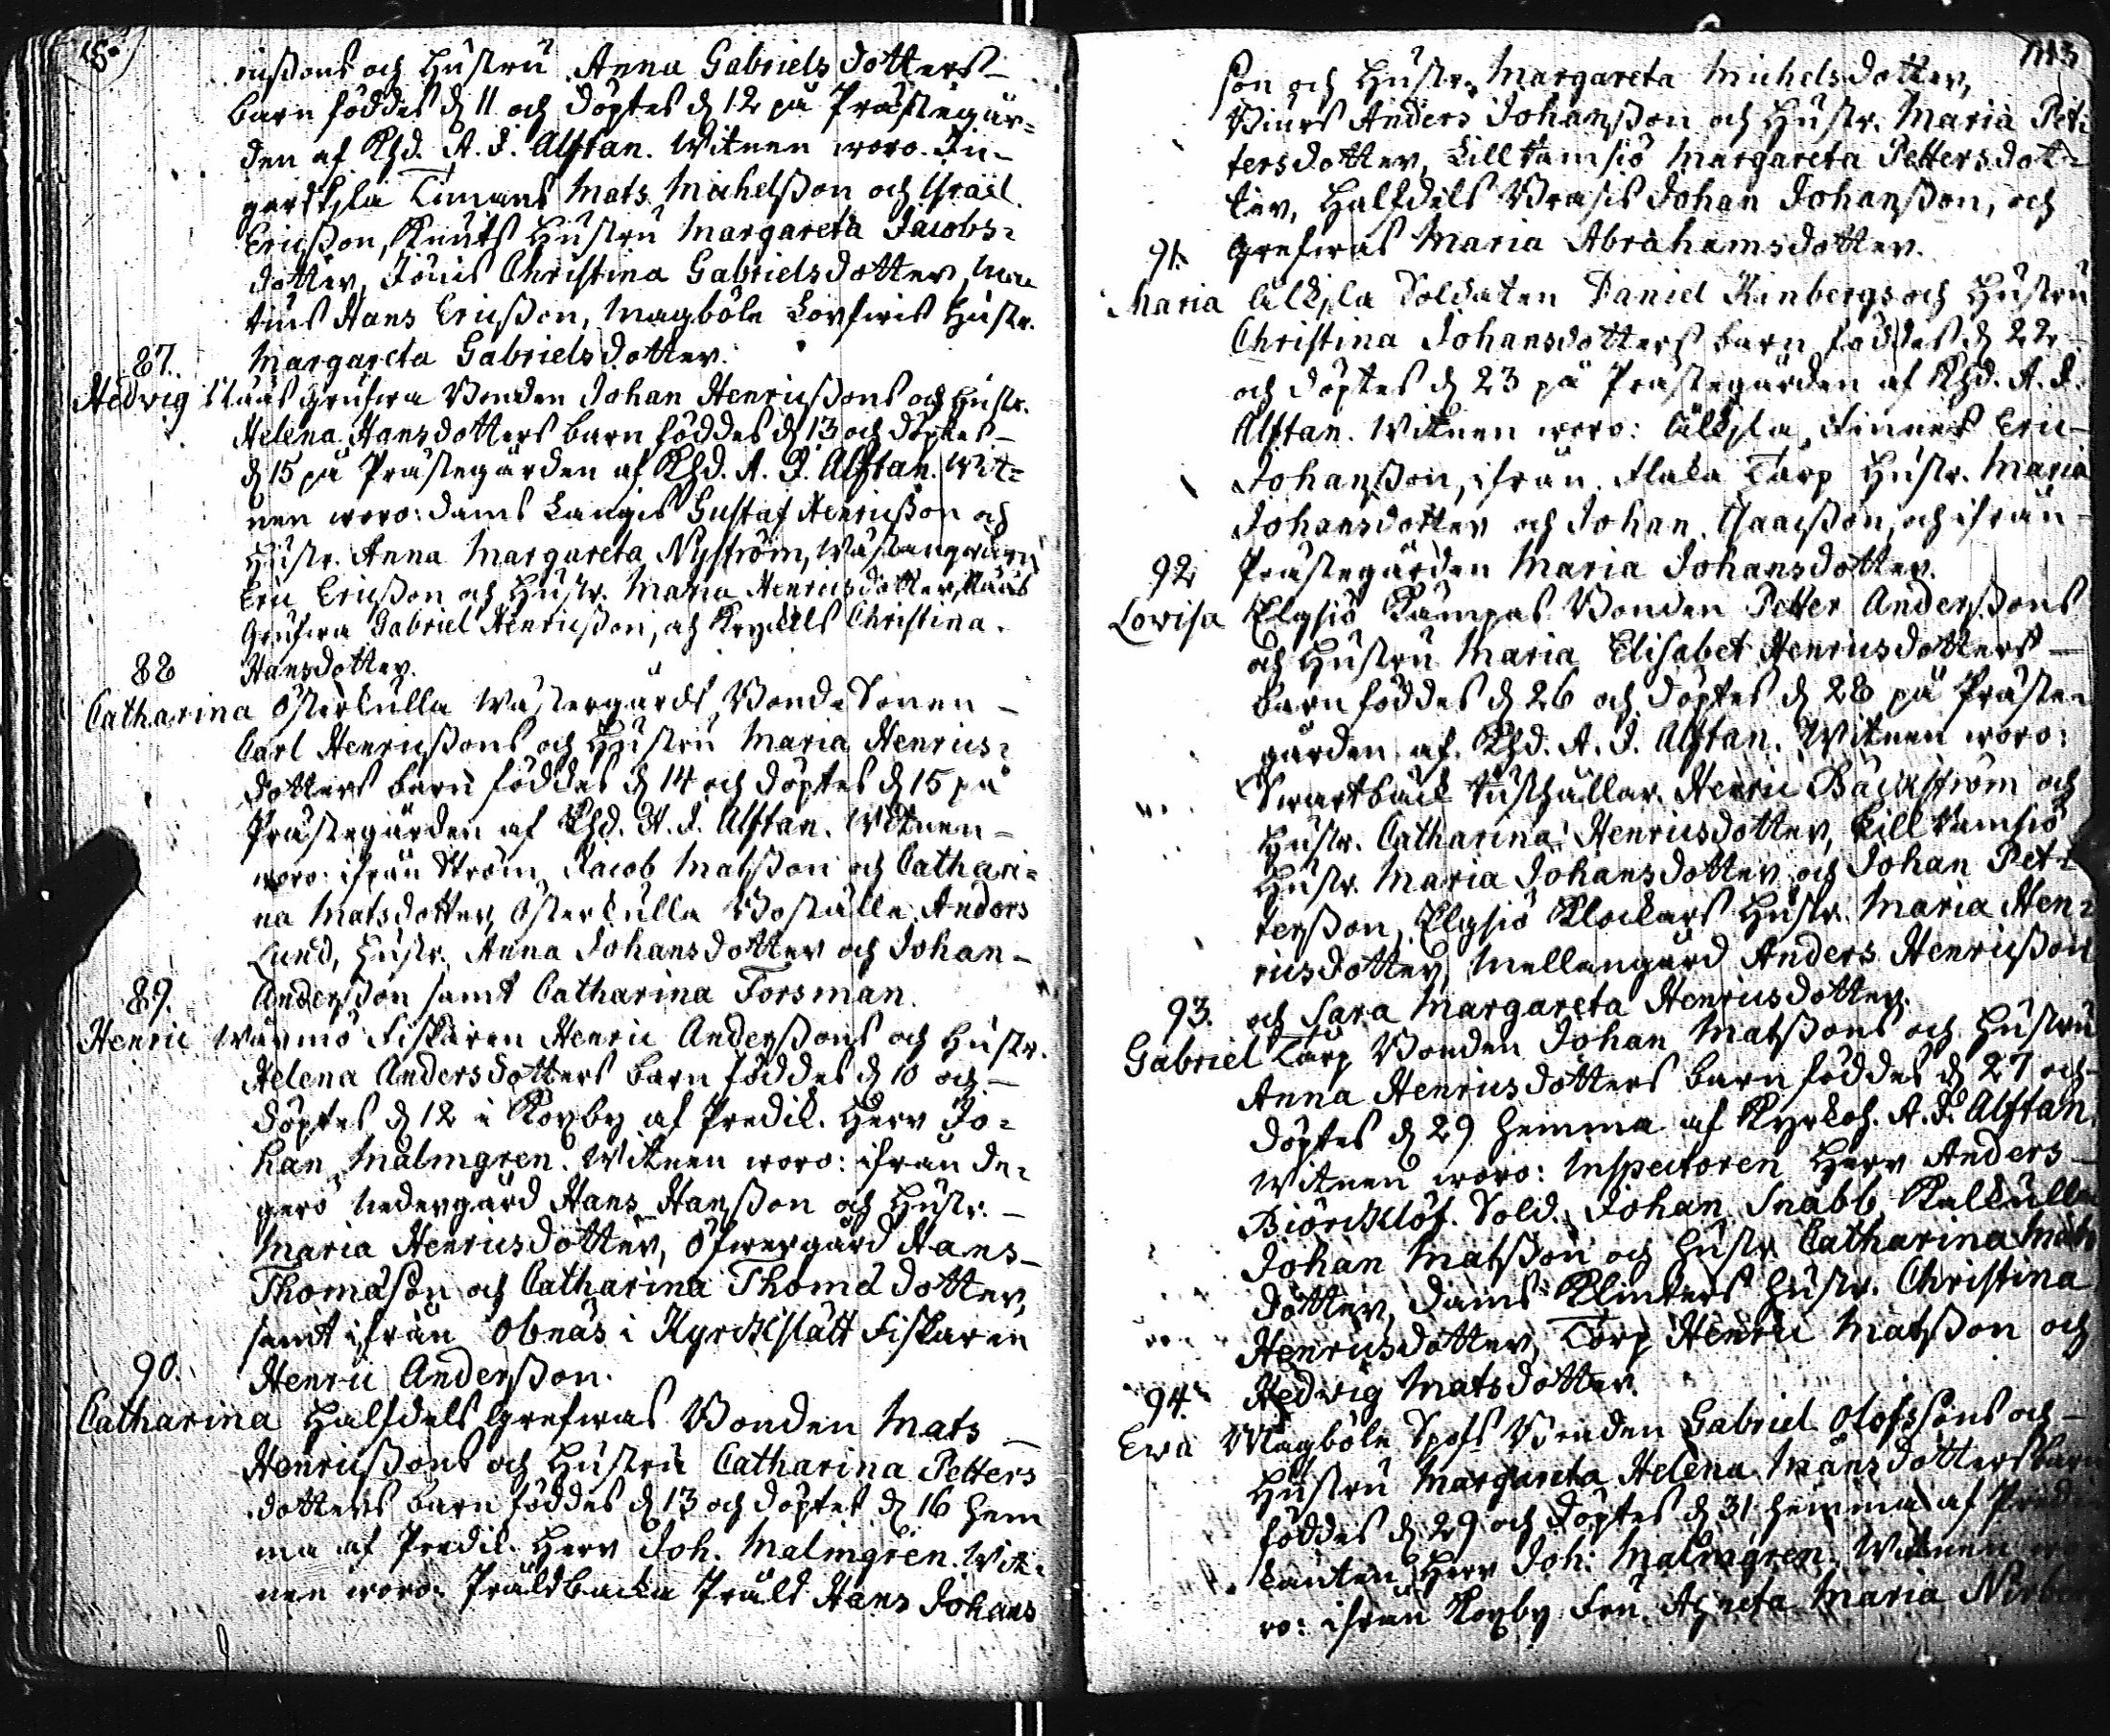 ricssons och Hustru Anna Gabriels dotters
barn föddes d 11 och döptes d 12 på Prästegår=
den af Khd. A. J. Alftan. Witnen woro. In-
gerskyla Timans Mats Michelsson och Israel
Ericsson, Knuts Hustru Margareta Jacobs=
dotter, Jönis Christina Gabrielsdotter,
Hans Ericsson, Magböle Hustr.
87. Margareta Gabrielsdotter.
Hedvig Grufwa Bonden Johan Henricssons och Hustr.
Helena Hansdotters barn föddes d 13 och döptes
d 15 på Prästegården af Khd. A. J. Alftan. Wit=
nen woro: Dams Langis Gustaf Henricsson och
Hustr. Anna Margareta Nyström,
Eric Ericsson och Hustr. Maria Henricsdotter,
Grufwa Gabriel Henricsson, och Christina
88 Hansdotter.
Catharina Österkulla Wästergårds Bonde Sonen
Carl Henricssons och Hustru Maria Henrics=
dotters barn föddes d 14 och döptes d 15 på
Prästegården af Khd. A. J. Alftan. Witnen
woro: ifrån Ström Jacob Matsson och Cathari=
na Matsdotter, Österkulla Boställe Anders
Lund, Hustr. Anna Johansdotter och Johan
89. Andersson samt Catharina Forsman.
Henric Wärmö Fiskaren Henric Anderssons och Hustr.
Helena Andersdotters barn föddes d 10 och
döptes d 12 i Kopby af Predik. Herr Jo=
han Malmgren. Witnen woro: ifrån De=
gerö Nedergård Hans Hansson och Hustr.
Maria Henricsdotter, Öfwergård Hans
Thomasson och Catharina Thomædotter,
samt ifrån Obnäs i Kyrckslätt Fiskaren
90. Henric Andersson.
Catharina Halfdels Grefwas Bonden Mats
Henricssons och Hustru Catharina Petters
dotters barn föddes d 13 och döptes d 16 hem
ma af Predik. Herr Joh. Malmgren. Wit=
nen woro: Präldbacka Präld Hans Johans
son och Hustr. Margareta Michelsdotter,
Anders Johansson och Hustr. Maria Pet=
tersdotter, Lill Kamsiö Margareta Pettersdot=
ter, Halfdels Johan Johansson, och
91. Grefwas Maria Abrahamsdotter.
Maria Älkyla Soldaten Daniel Kinbergs och Hustru
Christina Johansdotters barn föddes d 22
och döptes d 23 på Prästegården af Khd. A. J.
Alftan. Witnen woro: Älkyla, Finnes Eric
Johansson, ifrån Flaka Tårp Hustr. Maria
Johansdotter och Johan Isaacsson, och ifrån
92 Prästegården Maria Johansdotter.
Lovisa Elgsiö Kampas Bonden Petter Anderssons
och Hustru Maria Elisabet Henricsdotters
barn föddes d 26 och döptes d 28 på Präste
gården af Khd. A. J. Alftan. Witnen woro:
Swartbäck Henric Bäckström och
Hustr. Catharina Henricsdotter, Lill Kamsiö
Hustr. Maria Johansdotter och Johan Pet=
tersson, Elgsiö Klockars Hustr. Maria Hen=
ricsdotter, Mellangård Anders Henricsson
93. och Sara Margareta Henricsdotter.
Gabriel Tårp Bonden Johan Matssons och Hustru
Anna Henricsdotters barn föddes d 27 och
döptes d 29 hemma af Kyrkoh. A. J. Alftan.
Witnen woro: Inspectoren Herr Anders
Biörcklöf. Sold. Johan Snabb, Kalkulla
Johan Matsson och Hustr. Catharina Mats
dotter, Dams Klinkers Hustr. Christina
Henricsdotter, Torp Henric Matsson och
94. Hedvig Matsdotter.
Ewa Magböle Spofs Bonden Gabriel Olofssons och
Hustru Margareta Helena Månsdotters barn
föddes d 29 och döptes d 31 hemma af Predi
kanten Herr Joh: Malmgren. Witnen wo
ro: ifrån Kopby Fru Agneta Maria